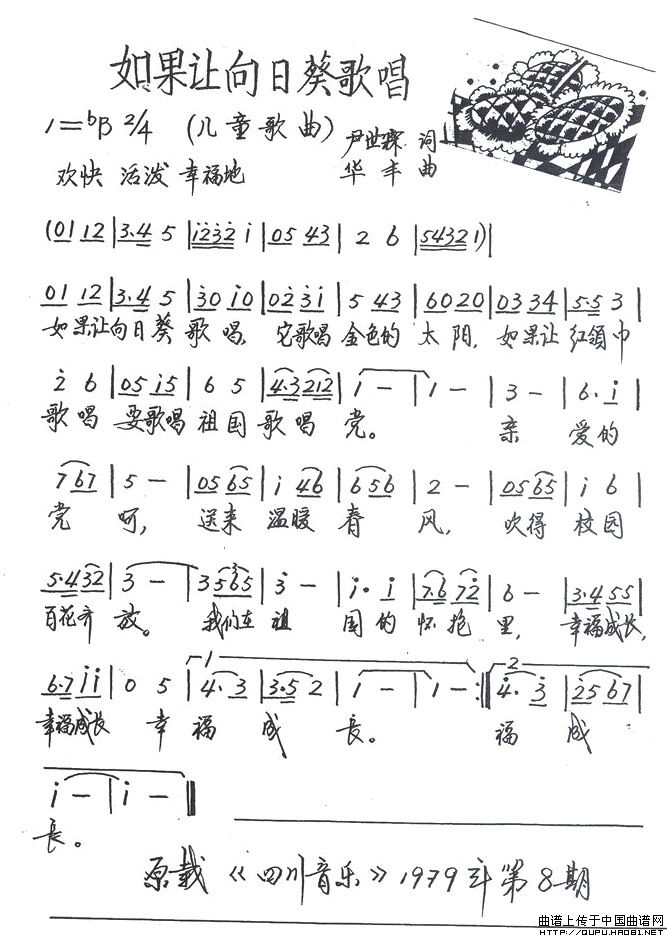 如果让向日葵歌唱
1=ᵇB 2/4 (儿童歌曲) 尹世霖 词
欢快 活泼 幸福地 华丰 曲
(01 12 | 3·4 5 | i232 i | 05 43 | 2 6 | 5432 1) |
01 12 | 3·4 5 | 30 i0 | 02 3i | 5 43 | 60 20 | 03 34 | 5·5 3 |
如果让向日葵 歌 唱, 它歌唱 金色的 太 阳, 如果让 红领巾
2 6 | 05 i5 | 6 5 | 4·3 212 | i - | i - | 3 - | 6· i |
歌 唱 要歌唱 祖国 歌 唱 党。 亲 爱的
7 67 | 5 - | 05 65 | i 46 | 6 56 | 2 - | 05 65 | i 6 |
党 呵, 送来 温暖 春 风, 吹得 校园
5·4 32 | 3 - | 35 365 | 3 - | i· i | 7·6 72 | 6 - | 3·4 55 |
百花齐 放。 我们在 祖 国 的 怀 抱 里, 幸福成长,
6·7 ii | 0 5 | 1 4· 3 | 3·5 2 | i - | i - :| 2 4· 3 | 25 67 |
幸福成长 幸 福 成 长。 福 成
i - | i - |
长。
原载《四川音乐》1979年第8期
曲谱上传于中国曲谱网
HTTP://QUPU.HAO81.NET